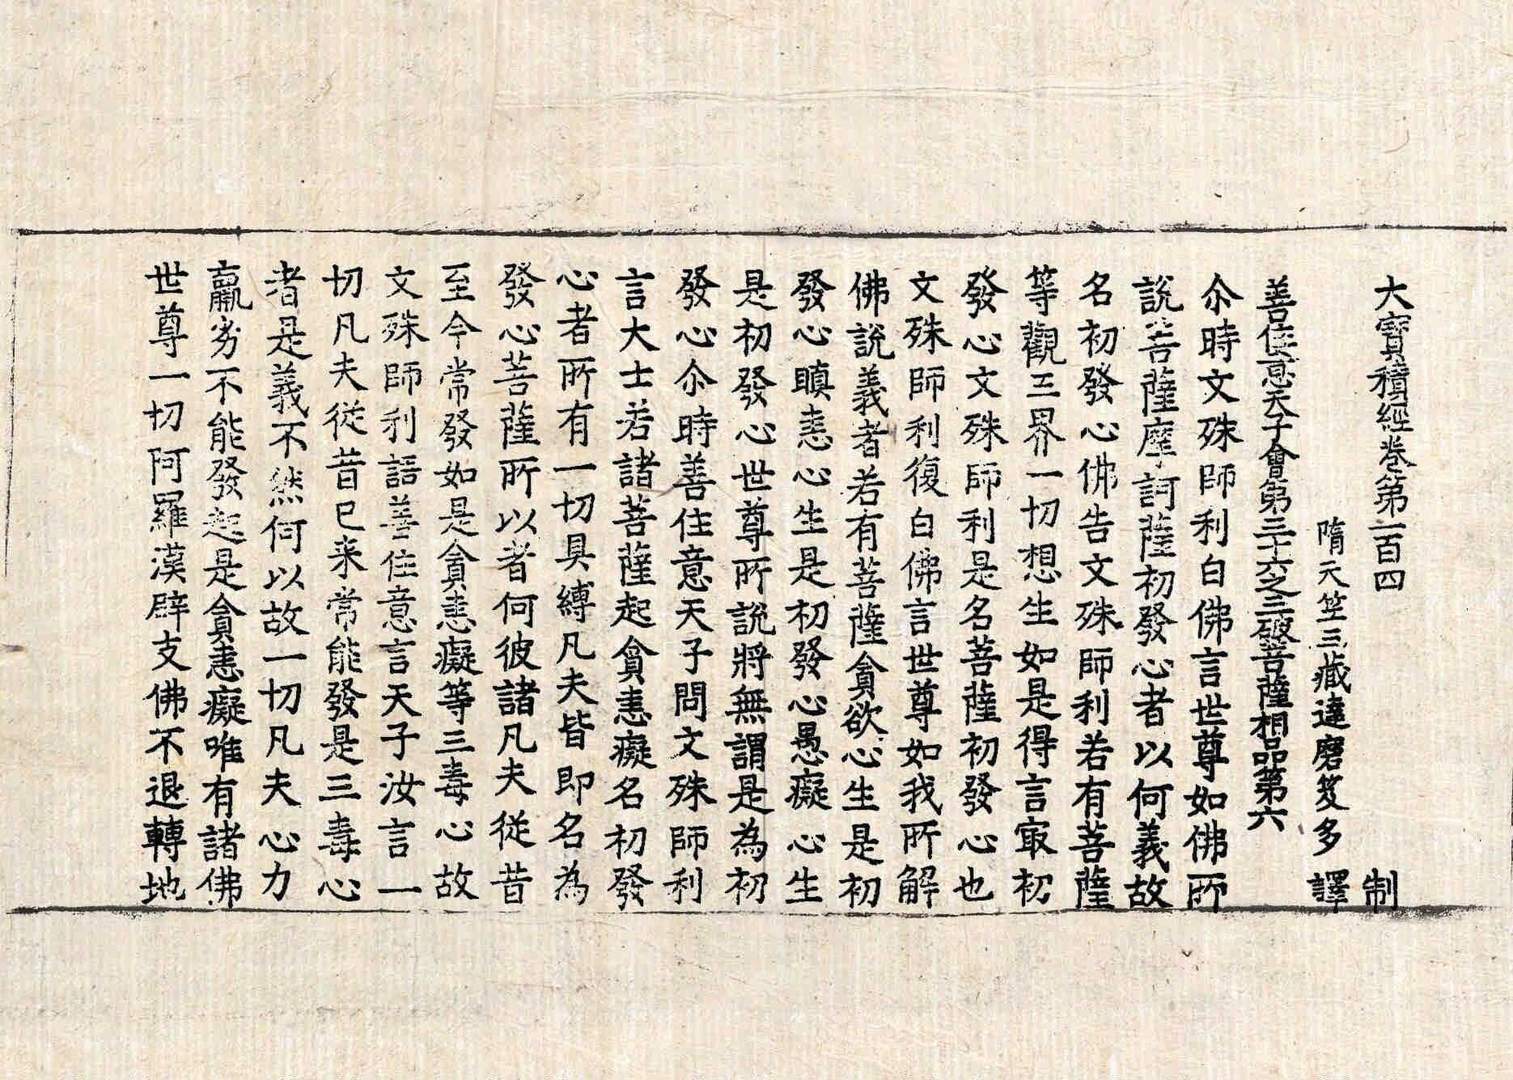 大寶積經卷第一百四 制
隋天竺三藏達磨笈多 譯
善住意天子會第三十六之三破菩薩相品第六
尒時文殊師利白佛言世尊如佛所
說菩薩摩訶薩初發心者以何義故
名初發心佛告文殊師利若有菩薩
等觀三界一切想生如是得言㝡初
發心文殊師利是名菩薩初發心也
文殊師利復白佛言世尊如我所解
佛說義者若有菩薩貪欲心生是初
發心瞋恚心生是初發心愚癡心生
是初發心世尊所說將無謂是為初
發心尒時善住意天子問文殊師利
言大士若諸菩薩起貪恚癡名初發
心者所有一切具縛凡夫皆即名為
發心菩薩所以者何彼諸凡夫從昔
至今常發如是貪恚癡等三毒心故
文殊師利語善住意言天子汝言一
切凡夫從昔已来常能發是三毒心
者是義不然何以故一切凡夫心力
羸劣不能發起是貪恚癡唯有諸佛
世尊一切阿羅漢辟支佛不退轉地